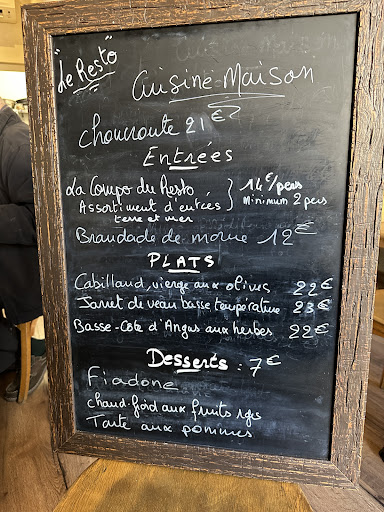 "Le Resto"
Cuisine Maison
Choucroute 21€
Entrées
La Compo du Resto } 14€/pers
Assortiment d'entrées Minimum 2 pers
terre et mer
Brandade de morue 12€
PLATS
Cabillaud, vierge aux olives 22€
Jarret de veau basse température 23€
Basse-Cote d'Angus aux herbes 22€
Desserts : 7€
Fiadone
Chaud-froid aux fruits rges
Tarte aux pommes